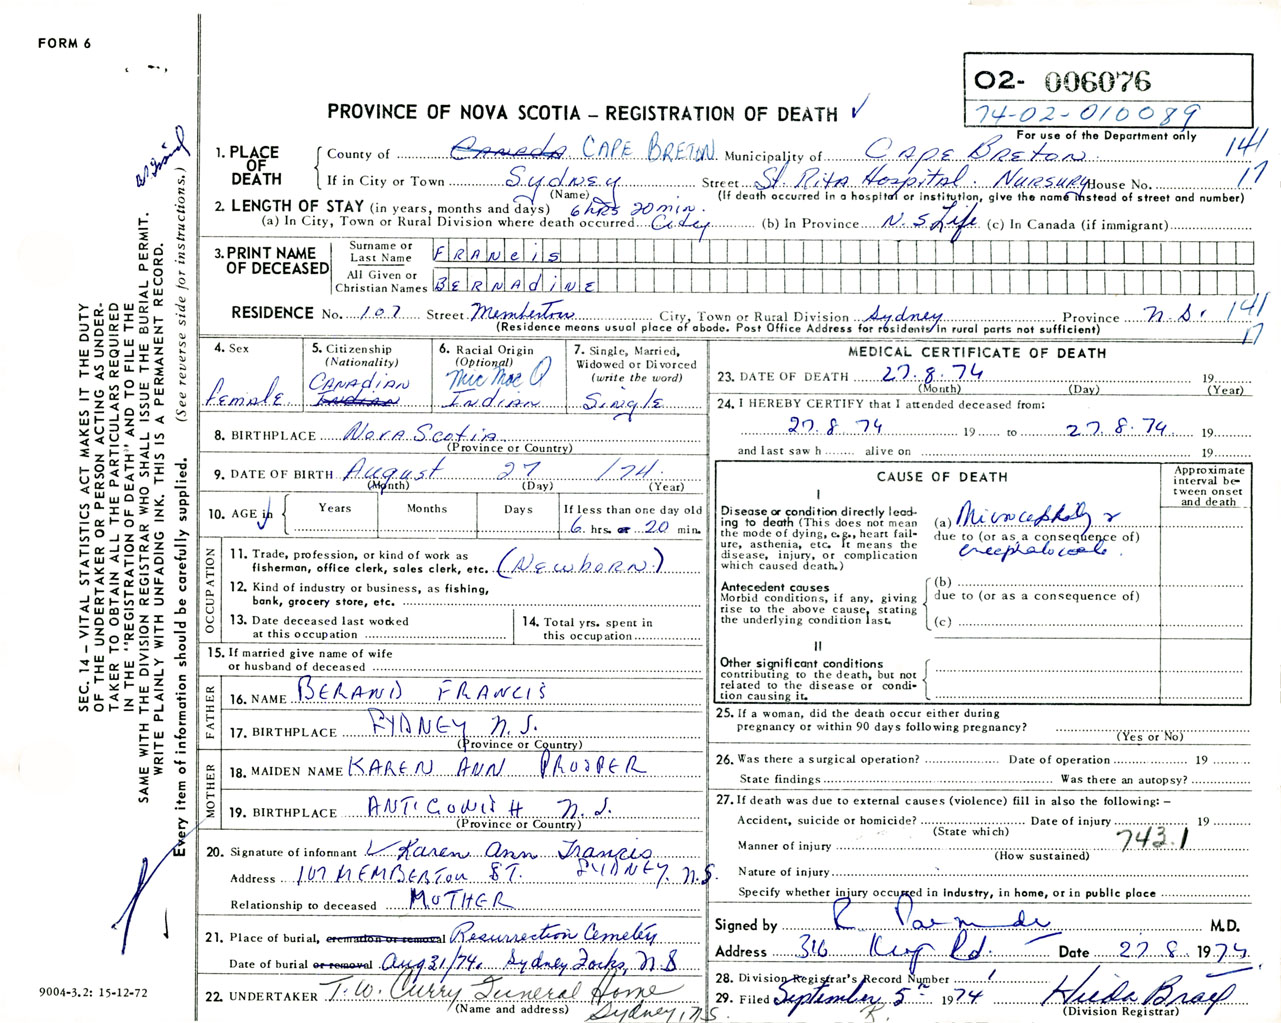 FORM 6
O2- 006076
74-02-010089
For use of the Department only
PROVINCE OF NOVA SCOTIA – REGISTRATION OF DEATH ✓
1. PLACE OF DEATH
County of Canada CAPE BRETON Municipality of CAPE BRETON 141
If in City or Town Sydney Street St Rita Hospital. Nursury House No. 17
(Name) (If death occurred in a hospital or institution, give the name instead of street and number)
2. LENGTH OF STAY (in years, months and days) 6 hrs 20 min.
(a) In City, Town or Rural Division where death occurred City (b) In Province N.S Life (c) In Canada (if immigrant)
3. PRINT NAME OF DECEASED
Surname or Last Name FRANCIS
All Given or Christian Names BERNADINE
RESIDENCE No. 107 Street Memberton City, Town or Rural Division Sydney Province N.S. 141
(Residence means usual place of abode. Post Office Address for residents in rural parts not sufficient) 17
4. Sex
Female
5. Citizenship
(Nationality)
CANADIAN
INDIAN
6. Racial Origin
(Optional)
Mic Mac
INDIAN
7. Single, Married,
Widowed or Divorced
(write the word)
Single
8. BIRTHPLACE Nova Scotia
(Province or Country)
9. DATE OF BIRTH August 27 174
(Month) (Day) (Year)
10. AGE in
Years Months Days If less than one day old
6 hrs. or 20 min.
OCCUPATION
11. Trade, profession, or kind of work as
fisherman, office clerk, sales clerk, etc. (Newborn)
12. Kind of industry or business, as fishing,
bank, grocery store, etc.
13. Date deceased last worked
at this occupation
14. Total yrs. spent in
this occupation
15. If married give name of wife
or husband of deceased
FATHER
16. NAME BERAND FRANCIS
17. BIRTHPLACE SYDNEY N.S.
(Province or Country)
MOTHER
18. MAIDEN NAME KAREN ANN PROSPER
19. BIRTHPLACE ANTIGONISH N.S.
(Province or Country)
20. Signature of informant ✓ Karen Ann Francis
Address 107 MEMBERTON ST. SYDNEY, N.S.
Relationship to deceased MOTHER
21. Place of burial, cremation or removal Resurrection Cemetery
Date of burial or removal Aug 31/74. Sydney Forks, N.S
22. UNDERTAKER T.W. Curry Funeral Home
(Name and address) Sydney, N.S.
MEDICAL CERTIFICATE OF DEATH
23. DATE OF DEATH 27.8.74 19
(Month) (Day) (Year)
24. I HEREBY CERTIFY that I attended deceased from:
27.8.74 19 to 27.8.74. 19
and last saw h alive on 19
CAUSE OF DEATH
Approximate
interval be-
tween onset
and death
I
Disease or condition directly lead-
ing to death (This does not mean
the mode of dying, e.g., heart fail-
ure, asthenia, etc. It means the
disease, injury, or complication
which caused death.)
(a) Microcephaly &
due to (or as a consequence of)
encephalocele.
Antecedent causes
Morbid conditions, if any, giving
rise to the above cause, stating
the underlying condition last.
(b)
due to (or as a consequence of)
(c)
II
Other significant conditions
contributing to the death, but not
related to the disease or condi-
tion causing it.
25. If a woman, did the death occur either during
pregnancy or within 90 days following pregnancy?
(Yes or No)
26. Was there a surgical operation? Date of operation 19
State findings Was there an autopsy?
27. If death was due to external causes (violence) fill in also the following: –
Accident, suicide or homicide? Date of injury 19
(State which) 743.1
Manner of injury
(How sustained)
Nature of injury
Specify whether injury occurred in industry, in home, or in public place
Signed by R M.D.
Address 316 King Rd. Date 27.8. 1974.
28. Division Registrar's Record Number 1
29. Filed September 5th 1974 Hilda
(Division Registrar)
SEC. 14 – VITAL STATISTICS ACT MAKES IT THE DUTY
OF THE UNDERTAKER OR PERSON ACTING AS UNDER-
TAKER TO OBTAIN ALL THE PARTICULARS REQUIRED
IN THE "REGISTRATION OF DEATH" AND TO FILE THE
SAME WITH THE DIVISION REGISTRAR WHO SHALL ISSUE THE BURIAL PERMIT.
WRITE PLAINLY WITH UNFADING INK. THIS IS A PERMANENT RECORD.
Every item of information should be carefully supplied. (See reverse side for instructions.)
9004-3.2: 15-12-72